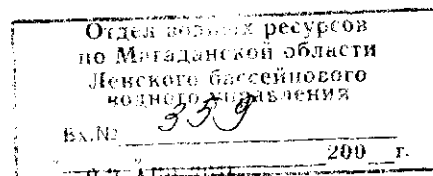 Отдел водных ресурсов
по Магаданской области
Ленского бассейнового
водного управления
Вх.№ 359
200 г.